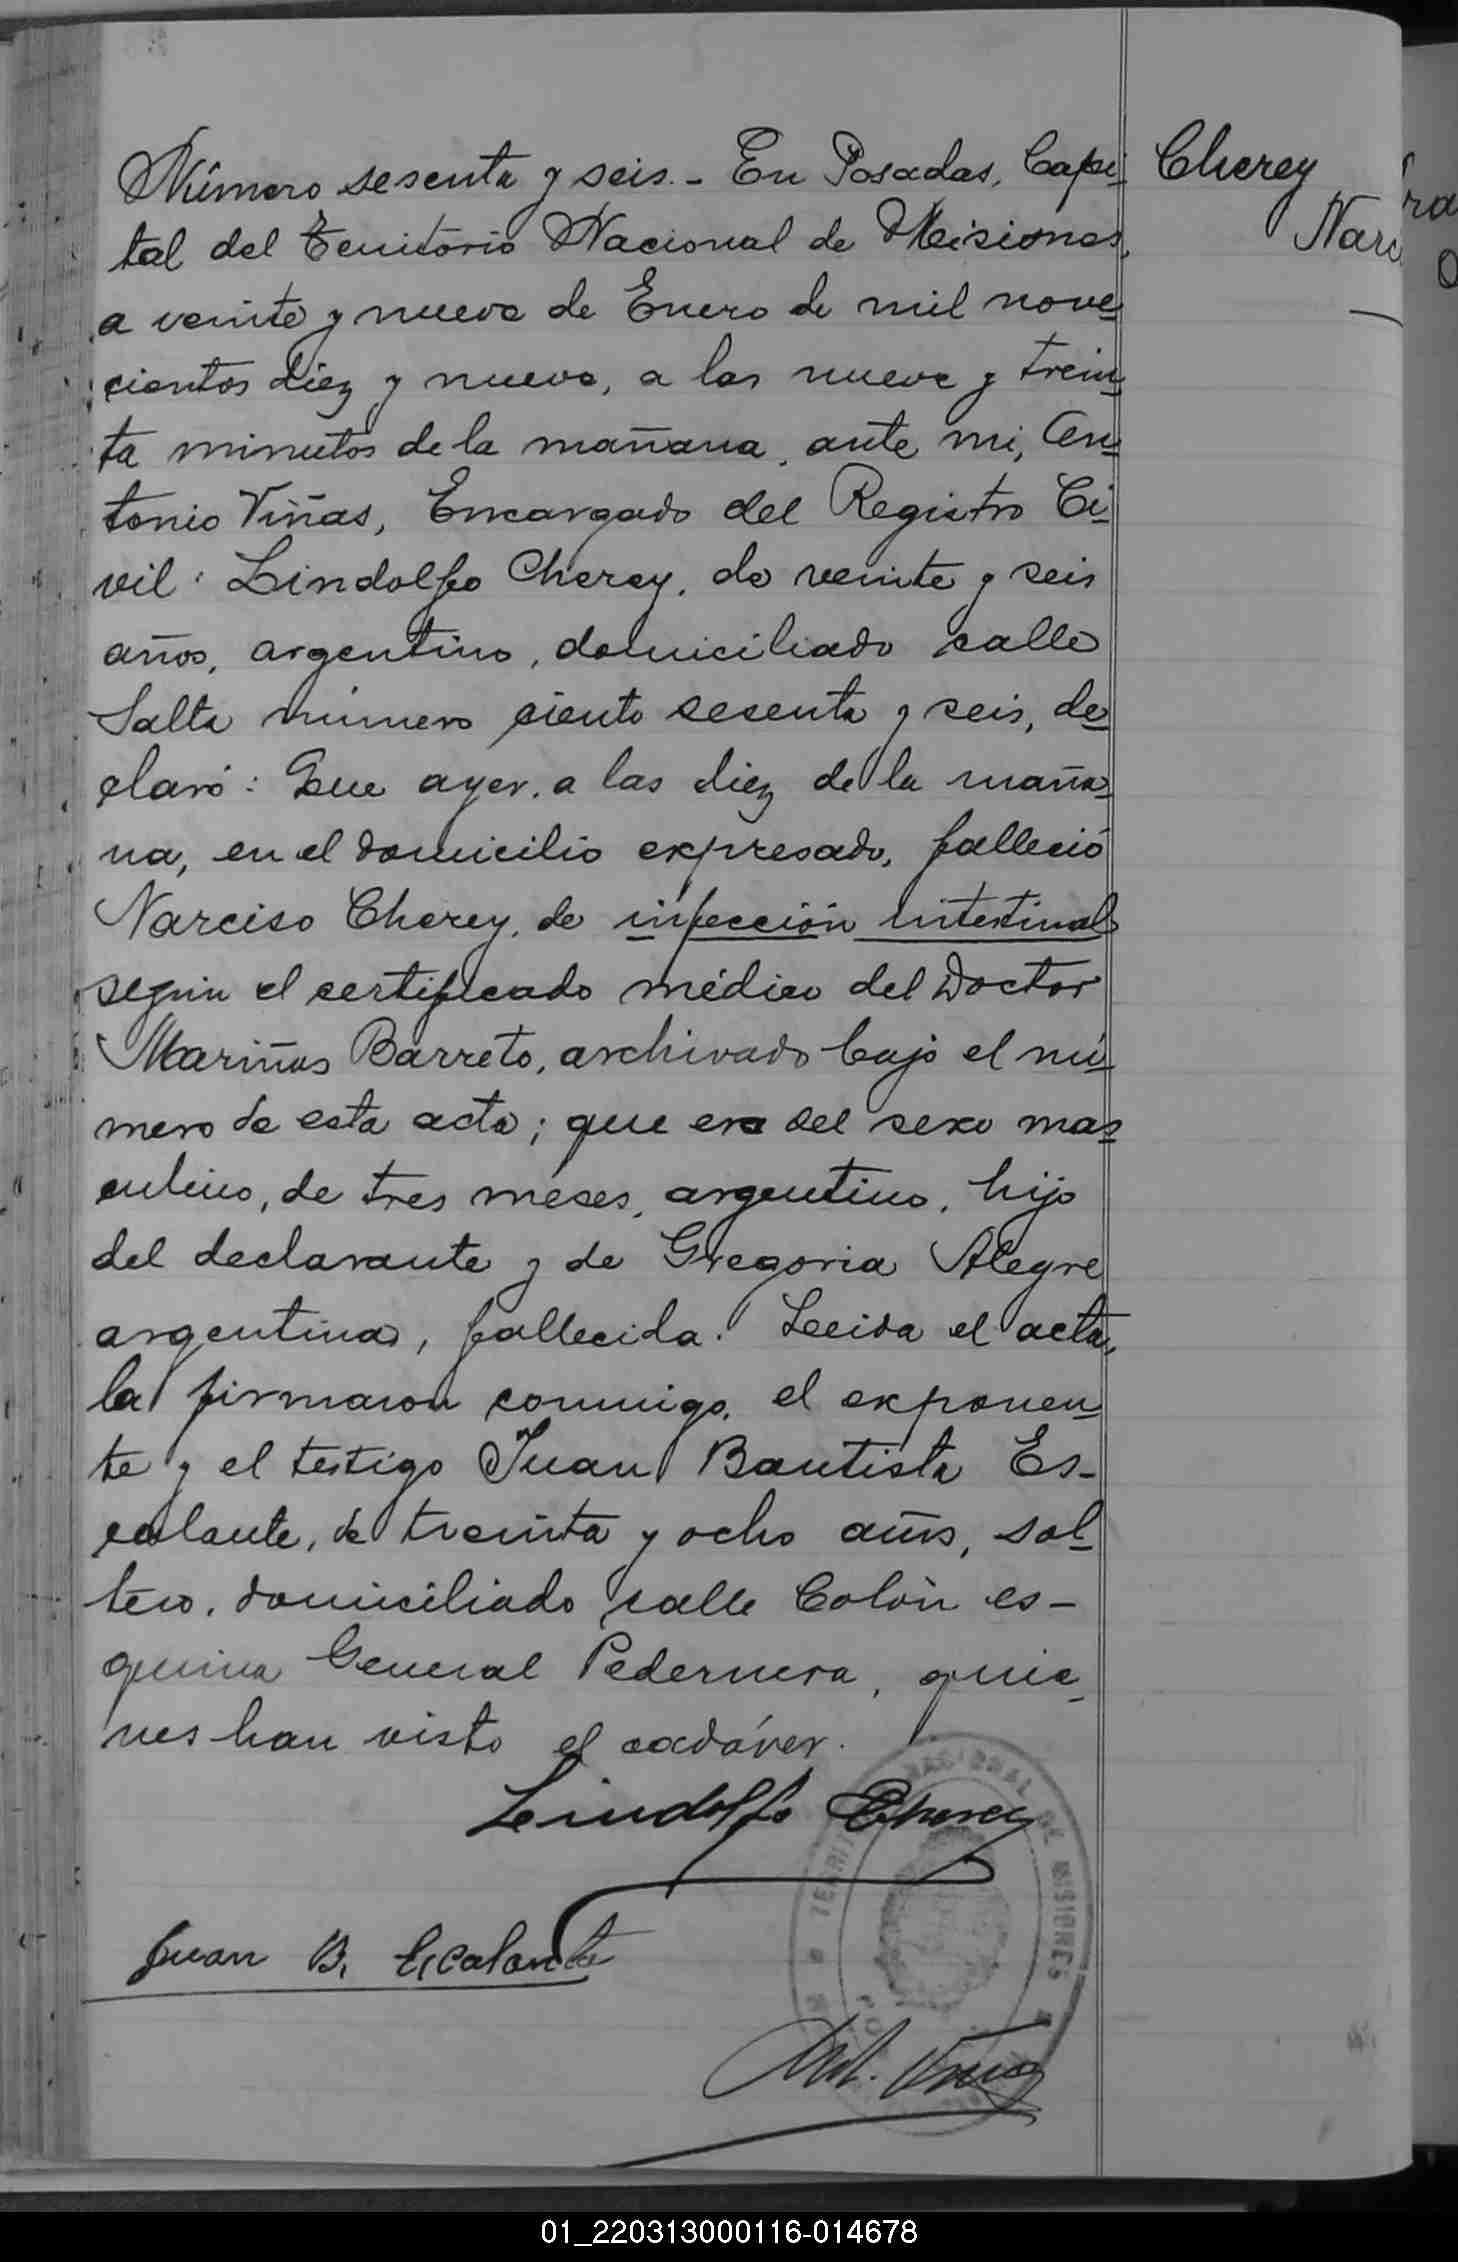 Número sesenta y seis.- En Posadas, Capi-
tal del Territorio Nacional de Misiones,
a veinte y nueve de Enero de mil nove-
cientos diez y nueve, a las nueve y trein-
ta minutos de la mañana, ante mi, An-
tonio Viñas, Encargado del Registro Ci-
vil: Lindolfo Cherey, de veinte y seis
años, argentino, domiciliado calle
Salta número ciento sesenta y seis, de-
claró: Que ayer, a las diez de la maña-
na, en el domicilio expresado, falleció
Narciso Cherey, de infección intestinal
según el certificado médico del Doctor
Mariños Barreto, archivado bajo el nú-
mero de esta acta; que era del sexo mas-
culino, de tres meses, argentino, hijo
del declarante y de Gregoria Alegre
argentina, fallecida. Leeida el acta,
la firmaron conmigo, el exponen-
te y el testigo Juan Bautista Es-
calante, de treinta y ocho años, sol-
tero, domiciliado calle Colón es-
quina General Pedernera, quie-
nes han visto el cadáver.
Lindolfo Cherey
Juan B. Escalante
Ant. Viñas
Cherey
Narc
NACIONAL DE MISIONES
ra
01_220313000116-014678